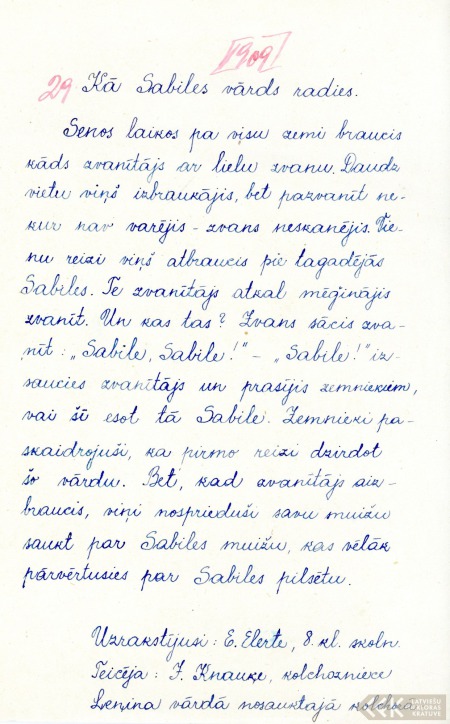 1909
29 Kā Sabiles vārds radies.
Senos laikos pa visu zemi braucis
kāds zvanītājs ar lielu zvanu. Daudz
vietu viņš izbraukājis, bet pazvanīt ne-
kur nav varējis - zvans neskanējis. Vie-
nu reizi viņš atbraucis pie tagadējās
Sabiles. Te zvanītājs atkal mēģinājis
zvanīt. Un kas tas? Zvans sācis zva-
nīt: „Sabile, Sabile!" - „Sabile!" iz-
saucies zvanītājs un prasījis zemniekiem,
vai šī esot tā Sabile. Zemnieki pa-
skaidrojuši, ka pirmo reizi dzirdot
šo vārdu. Bet, kad zvanītājs aiz-
braucis, viņi nosprieduši savu muižu
saukt par Sabiles muižu, kas vēlāk
pārvērtusies par Sabiles pilsētu.
Uzrakstījusi: E. Elerte, 8. kl. skoln.
Teicēja: F. Knauķe, kolchozniece
Ļeņina vārdā nosauktajā kolchozā
LATVIEŠU
FOLKLORAS
KRĀTUVE